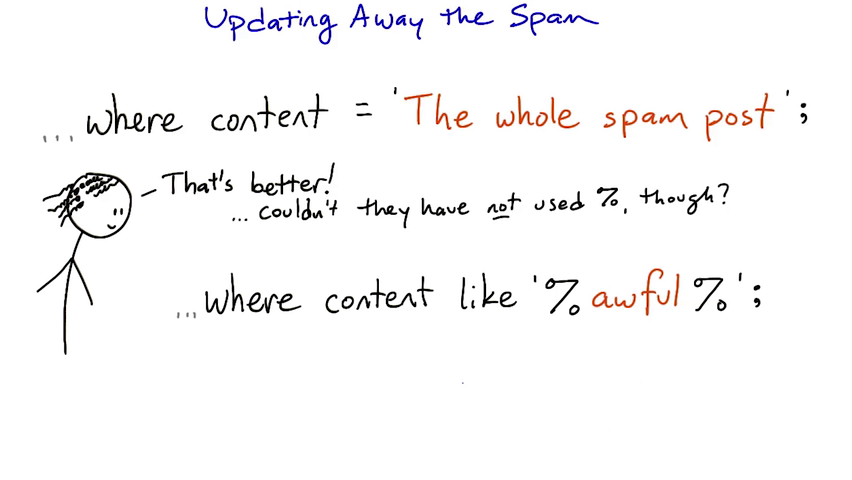 Updating Away the Spam
...where content = 'The whole spam post';
That's better!
... couldn't they have not used %, though?
...where content like '%awful%';